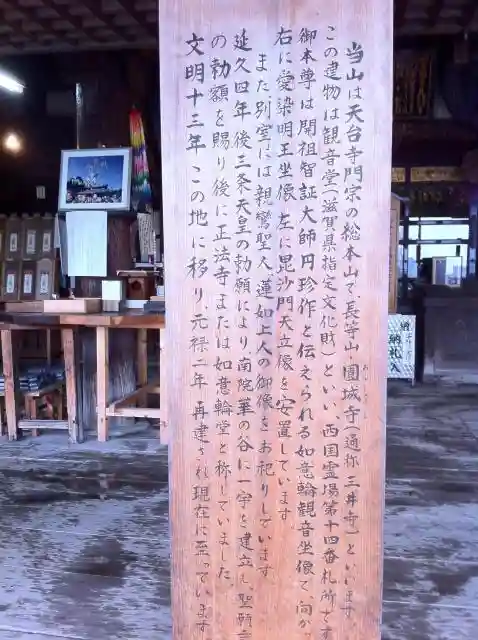 当山は天台寺門宗の総本山で長等山園城寺(通称三井寺)といいます
この建物は観音堂(滋賀県指定文化財)といい西国霊場第十四番札所です
御本尊は開祖智証大師円珍作と伝えられる如意輪観音坐像で向かっ
右に愛染明王坐像左に毘沙門天立像を安置しています
また別室には親鸞聖人蓮如上人の御像をお祀りしています
延久四年後三条天皇の勅願により南院華の谷に一宇を建立し聖願寺
の勅額を賜り後に正法寺または如意輪堂と称していました
文明十三年この地に移り、元禄二年再建され現在に至っています
納札入